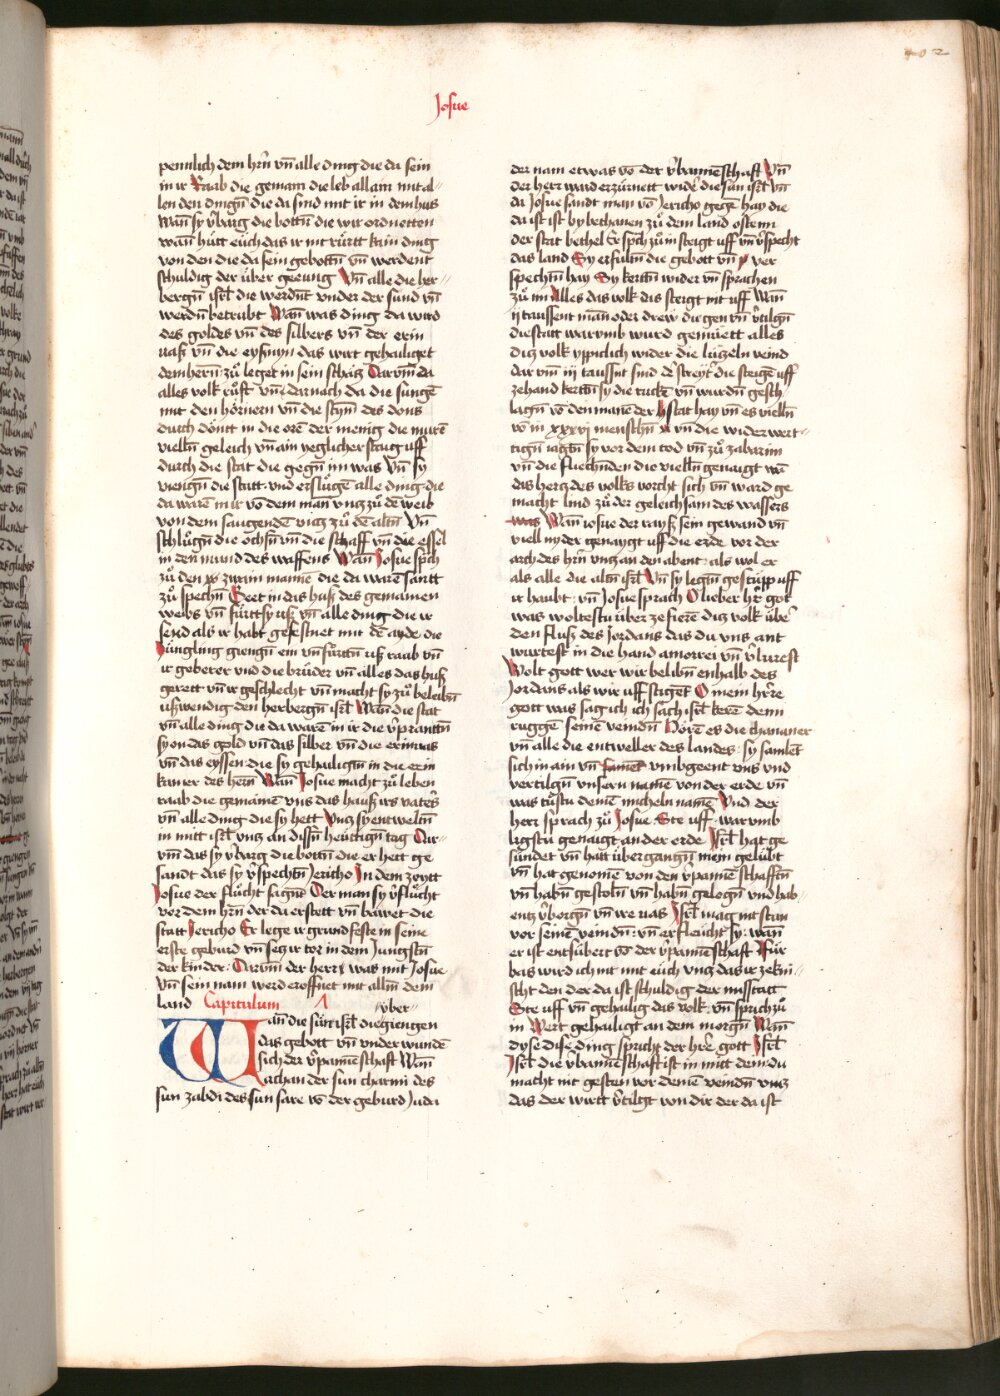 402
Josue
pennlich dem hrn̄ vn̄ alle ding die da sein
in ir Raab die gemain die leb allain mit al-
len den dingn̄ die da sind mit ir in dem hus
Wan̄ sy v̄barg die bottn̄ die wir ordnetten
wan̄ hütt eüch das ir nit rürtt kain ding
von den die da sein gebottn̄ vn̄ werdent
schuldig der über geeung Vn̄ alle die her-
bergn̄ isrl̄ die werdnt vnder der sünd vn̄
werdn̄ betrübt Wan̄ was ding da wird
des goldes vn̄ des silbers vn̄ der erin
uaß vn̄ die eyßnyn das wirt gehailiget
dem hern̄ zů leget in sein schätz Darum̄ da
alles volk růft vn̄ darnach da die sungē
mit den hörnern vn̄ die stym̄ des dons
durch dönt in die orē der menig die murē
vielln̄ geleich vn̄ ain yeglicher staig uff
durch die stat die gegn̄ im was Vn̄ sy
viengn̄ die statt vnd erslůgē alle ding die
da warē in ir vō dem man̄ vntz zů dē weib
von dem saugendē vntz zů dē altn̄ Vn̄
schlůgn̄ die ochsn̄ vn̄ die schaff vn̄ die essel
in den mund des waffens Wan̄ Josue sp̄ch
zů den zwain manne die da warē santt
zů spechn̄ Geet in das huß des gemainen
weibs vn̄ fürtt sy uß vn̄ alle ding die ir
send als ir habt gefestnet mit dē ayde die
Jüngling giengn̄ ein vn̄ fürttn̄ uß raab vn̄
ir geberer vnd die brüder vn̄ alles das huß
gerett vn̄ ir geschlecht vn̄ macht sy zů beleibn̄
ußwendig den herbergn̄ isrl̄ Wan̄ die stat
vn̄ alle ding die da warē in ir die v̄prantn̄
sy on das gold vn̄ das silber vn̄ die erin uas
vn̄ das eyssen die sy gehailigtn̄ in die erin
kamer des hern̄ Wan̄ Josue macht zů leben
raab die gemainē vns das hauß irs vaters
vn̄ alle ding die sy hett Vntz sy entweltn̄
in mitt isrl̄ vntz an dissn̄ heüttign̄ tag Dar-
vm̄ das sy v̄barg die bottn̄ die er hett ge
sandt das sy v̄spechtn̄ Jericho In dem zeytt
Josue der flůcht sagn̄t Der man sy v̄flůcht
vor dem hrn̄ der da erstett vn̄ bawet die
statt Jericho Er lege ir grundfeste in seine
erste geburd vn̄ setz ir tor in dem Jungstn̄
der kinder · Darum̄ der herr was mit Josue
vn̄ sein nam werd eroffnet mit allm̄ dem
land Capitulum über-
Wan̄ die sün isrl̄ die giengen
das gebott vn̄ vnder wunde
sich der v̄panneschaft Wan̄
achan der sun charmi des
sun zabdi des sun sare vō der geburd Juda
der nam etwas vō der v̄banneschaft Vn̄
der herr ward erzürnett widē die sün isrl̄ vn̄
da Josue sandt man vō Jericho gegē hay die
da ist ist by bethauen zů dem land osten
der stat bethel Er sp̄ch zů im steigt uff vn̄ v̄specht
das land Sy erfultn̄ die gebott vn̄ ver
spechtn̄ hay Sy kertn̄ wider vn̄ sprachen
zů im Alles das volk das steigt nit uff Wan̄
ij taussent man̄ oder drew die gen vn̄ v̄tilgn̄
die statt warumb wurd gemüett alles
ditz volk ÿppiclich wider die lützeln veind
dar vm̄ iij taussnt sind dē streytr̄ die steigē uff
zehand kertn̄ sy die rucke vn̄ wurdn̄ gesch-
lagn̄ vō den manē der stat hay vn̄ es vielln̄
vō in xxxvj menschn̄ vn̄ die widerwert-
tign̄ iagtn̄ sy vor dem tod vn̄ zů zabarim
vn̄ die fluechnden die vielln̄ genaigt wā
das hertz des volks vorcht sich vn̄ ward ge
macht lind zů der geleichsam des wassers
was Wan̄ iosue der rayß sein gewand vn̄
viell nyder genaygt uff die erde vor der
arch des hrn̄ vntz an den abent · als wol er
als alle die altn̄ isrl̄ Vn̄ sy legtn̄ gestüpp uff
ir haubt · vn̄ Josue sprach O lieber hr̄ got
was woltestu über ze fiern̄ ditz volk übē
den fluß des Jordans das du vns ant
wurtest in die hand amorrei vn̄ v̄lurest
Wolt gott wer wir belibn̄ enhalb des
Jordans als wir uff stigēt O mein hr̄re
gott was sag ich ich sach isrl̄ kerē denn
ruggē seinē veindn̄ Hörē es die chananer
vn̄ alle die entweller des landes · sy samlēt
sich in ain vn̄ samēt vmbgeent vns vnd
vertilgn̄ vnsern namē von der erde vn̄
was tůstu deinē micheln namē Vnd der
herr sprach zů Josue Ste uff · warumb
ligstu genaigt an der erde Isrl̄ hat ge
sündet vn̄ hatt übergangn̄ mein gelübt
vn̄ hat genomē von den v̄panneschafftn̄
vn̄ habn̄ gestoln̄ vn̄ habn̄ gelogn̄ vnd hab-
entz v̄borgn̄ vn̄ we uas Isrl̄ mag nit stan
vor seinē veindn̄ · vn̄ er fleücht sy · wan̄
er ist entsübert vō der v̄panneschaft Für
bas wird ich nit mit eüch vntz das ir zekni-
scht den der da ist schuldig der missttatt
Ste uff vn̄ gehailig das volk · vn̄ sprich zů
in Wert gehailigt an dem morgn̄ Wan̄
dyse dise ding spricht der hērē gott Isrl̄
Isrl̄ die v̄banneschaft ist in mitt dein · du
macht nit gesten vor deinē veindn̄ vntz
das der wirtt v̄tilgt von dir der da ist